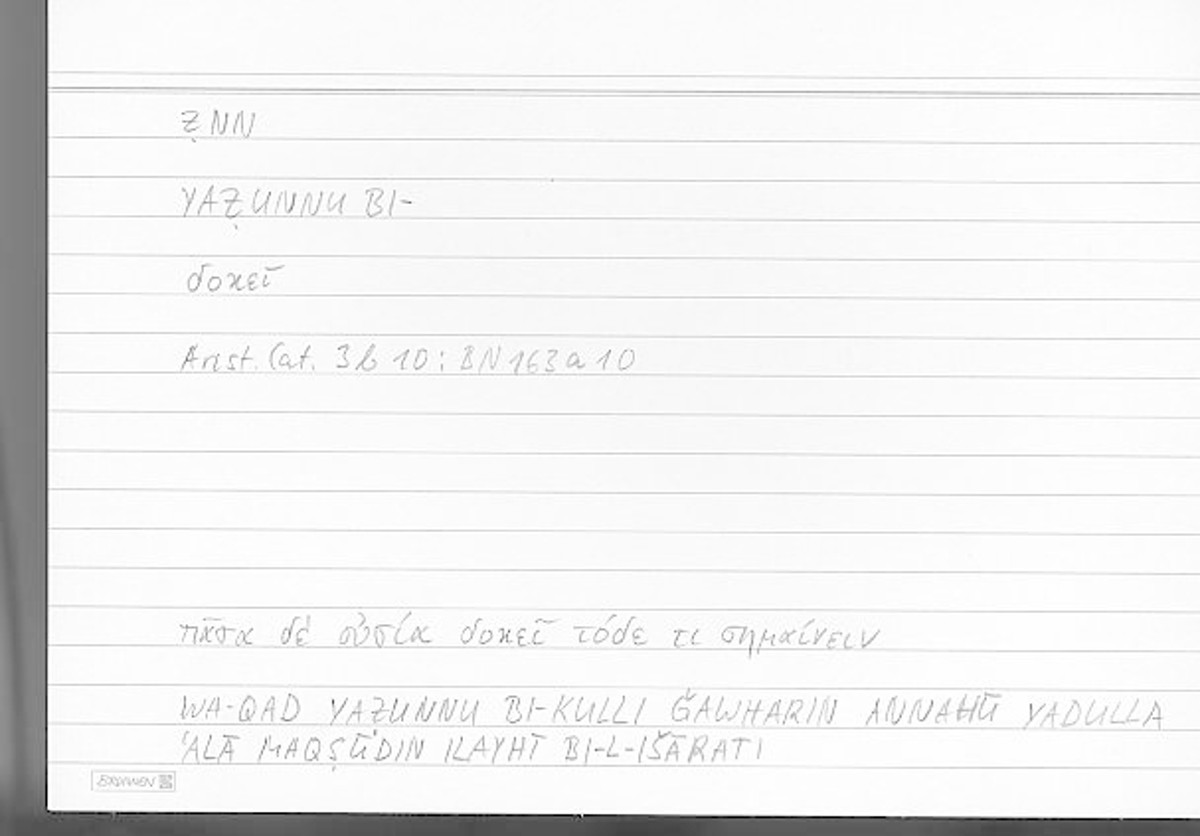 ẒNN
YAẒUNNU BI-
δοκεῖ
Arist. Cat. 3 b 10 : BN 163 a 10
πᾶσα δὲ οὐσία δοκεῖ τόδε τι σημαίνειν
WA-QAD YAZUNNU BI-KULLI ĞAWHARIN ANNAHŪ YADULLA
ʿALĀ MAQṢŪDIN ILAYHĪ BI-L-IŠĀRATI